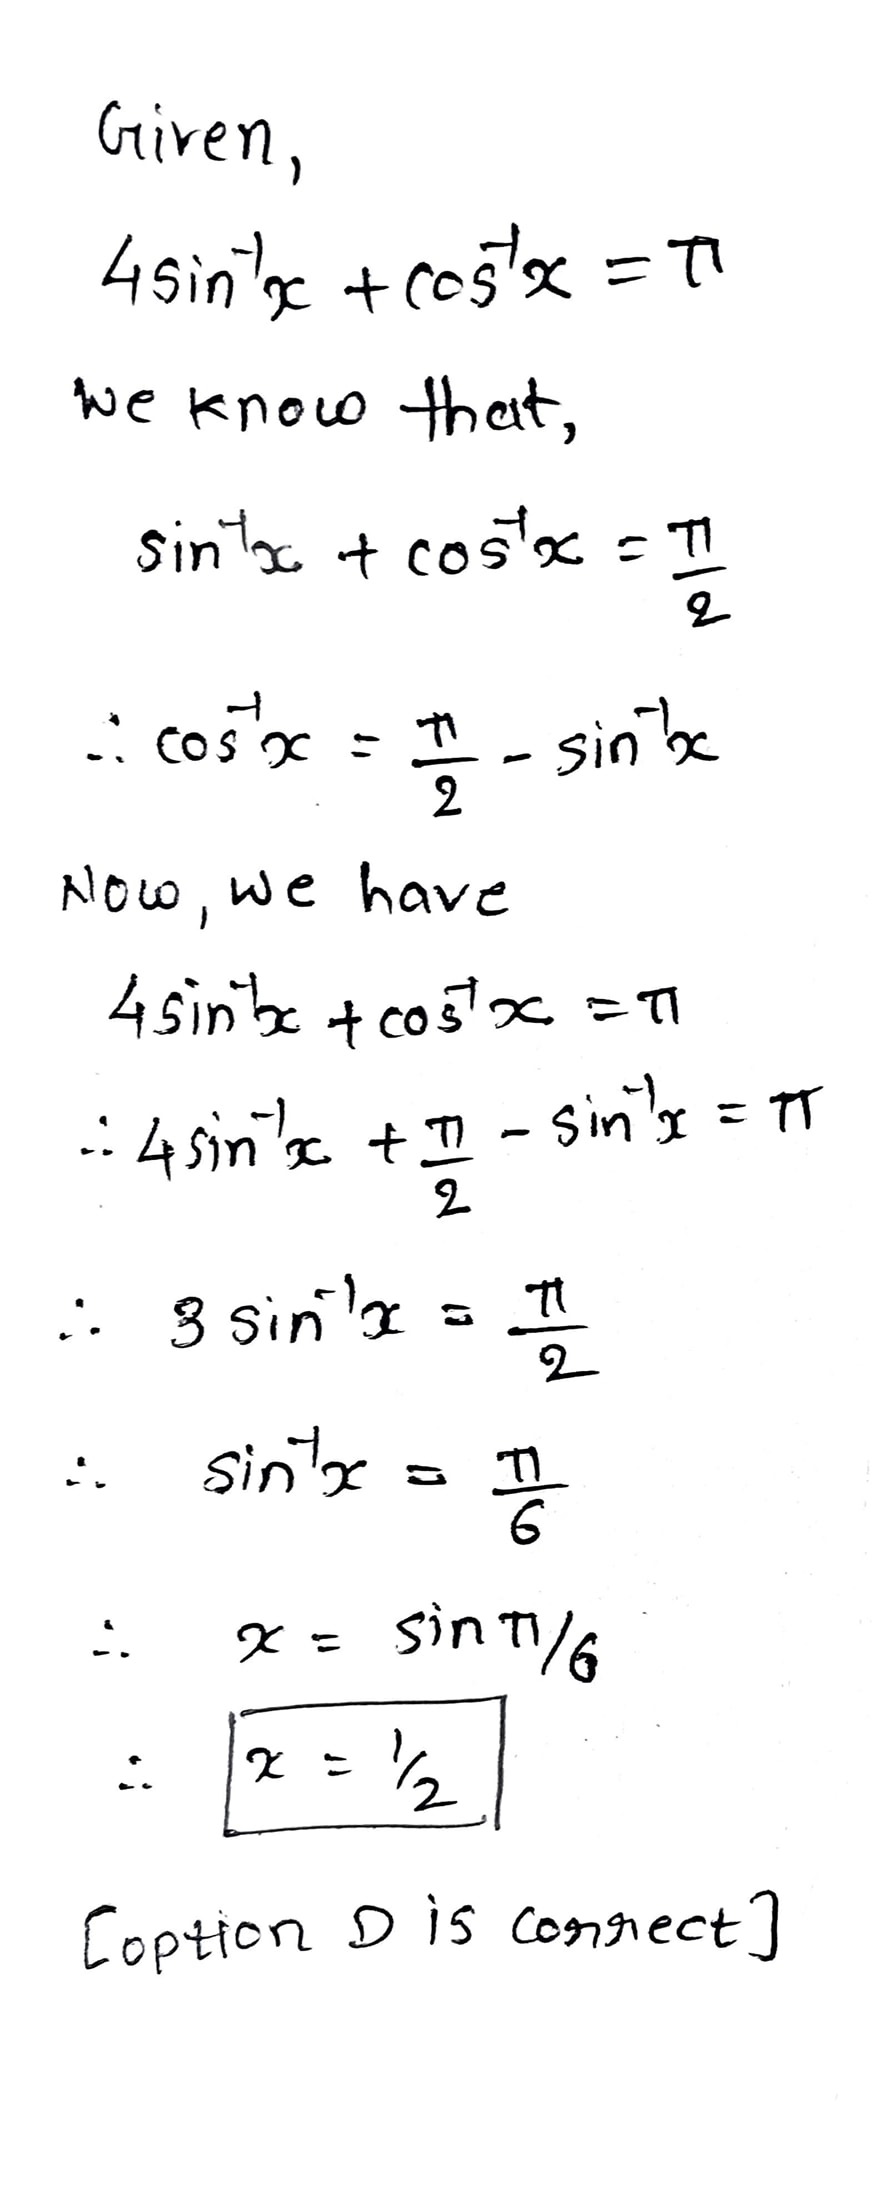 Given,
4sin⁻¹x + cos⁻¹x = π
We know that,
sin⁻¹x + cos⁻¹x = π/2
∴ cos⁻¹x = π/2 - sin⁻¹x
Now, we have
4sin⁻¹x + cos⁻¹x = π
∴ 4sin⁻¹x + π/2 - sin⁻¹x = π
∴ 3 sin⁻¹x = π/2
∴ sin⁻¹x = π/6
∴ x = sin π/6
∴ x = 1/2
[option D is correct]